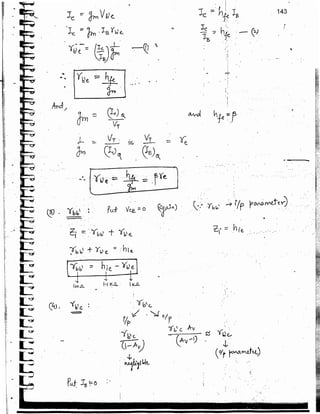 143
Ic = gm Vb'e
Ic = hfe IB
Ic = gm · IB rb'e
Ic/IB = hfe — (2)
rb'e = (Ic/IB) 1/gm — (1)
∴ rb'e = hfe/gm
And,
gm = (Ic)Q/VT and hfe = β
1/gm = VT/(Ic)Q ≅ VT/(IE)Q = re
∴ rb'e = hfe/gm = βre
(3). rbb' : Put VCE = 0 (Again) (∵ rbb' → i/p parameter)
Zi = rbb' + rb'e Zi = hie
rbb' + rb'e = hie
rbb' = hie - rb'e
1KΩ
(4). rb'c :
rb'c
i/p o/p
rb'c/(1-Av) rb'c Av/(Av-1) ≅ rb'c
negligible (o/p parameter)
Put IB = 0